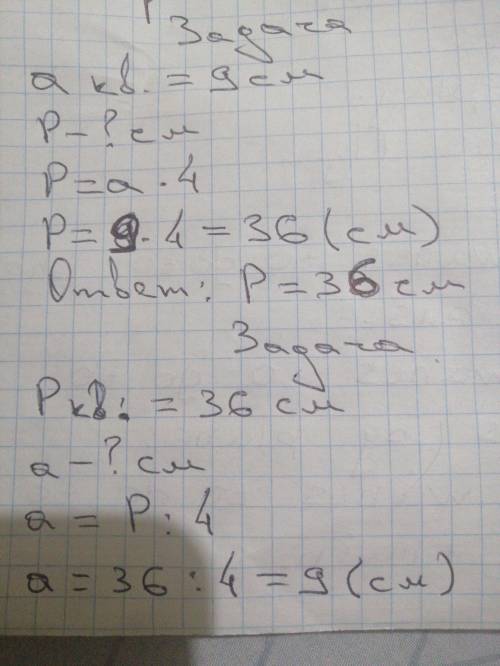 Задача
а кв. = 9 см
Р – ? см
Р = а · 4
Р = 9 · 4 = 36 (см)
Ответ: Р = 36 см
Задача
Р кв. = 36 см
а – ? см
а = Р : 4
а = 36 : 4 = 9 (см)